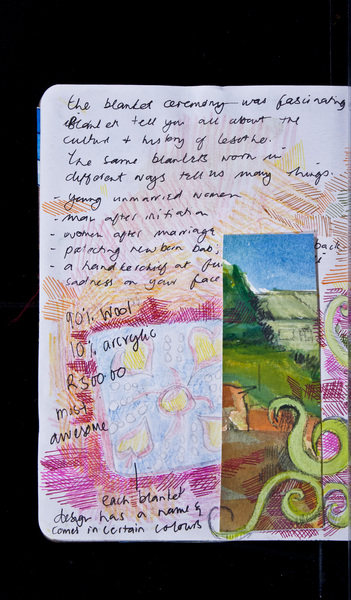 the blanket ceremony was fascinating
Blanket tell you all about the
culture + history of lesotho.
The same blankets worn in
different ways tell us many things.
- young unmarried women
- man after initiation
- women after marriage
- protecting newborn baby back
- a handkercheif at fu
sadness on your face
90% Wool
10% arcrylic
R500.00
most
awesome
each blanket
design has a name &
comes in certain colours